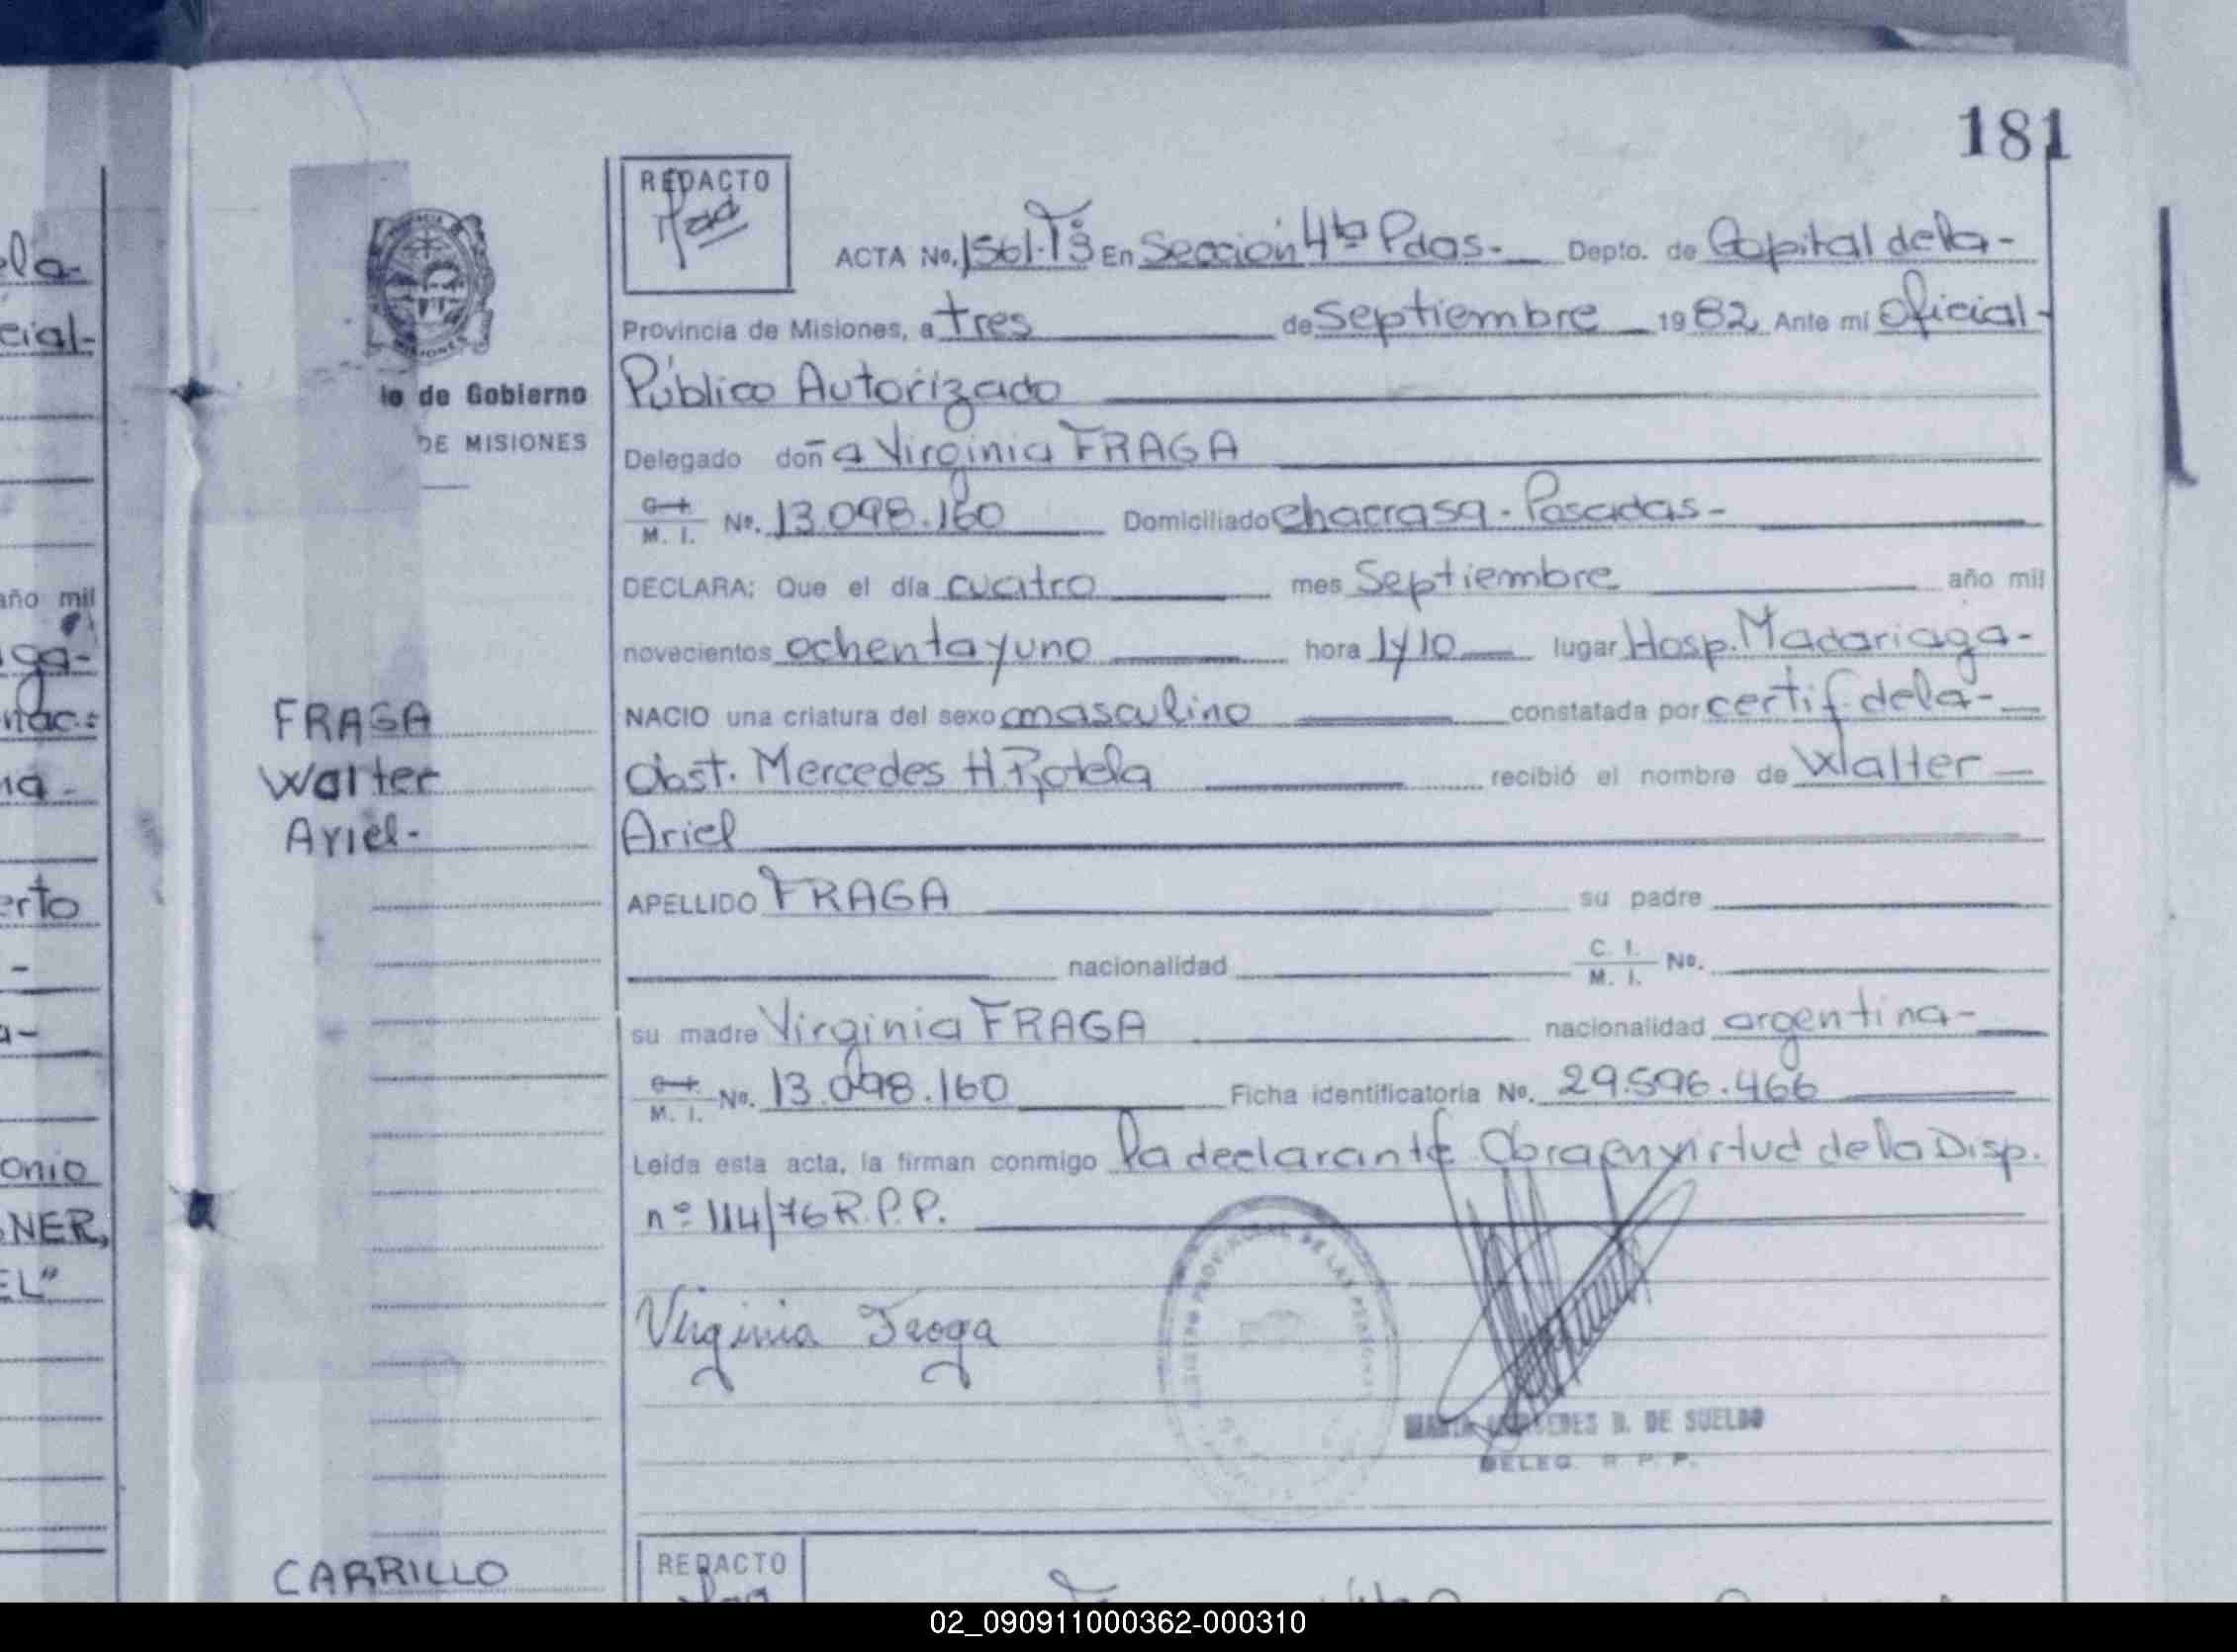 181
REDACTO
ACTA No. 1561. Tº3 En Sección 4ta Pdas.- Depto. de Capital de la-
Provincia de Misiones, a tres de Septiembre 1982 Ante mi Oficial-
Público Autorizado
Delegado doña Virginia FRAGA
C. I. M. I. No. 13.098.160 Domiciliado Chacra 59 - Posadas-
DECLARA: Que el día cuatro mes Septiembre año mil
novecientos ochenta y uno hora 1y10 lugar Hosp. Madariaga-
NACIO una criatura del sexo masculino constatada por certif. de la-
Obst. Mercedes H. Rotela recibió el nombre de Walter
Ariel
APELLIDO FRAGA su padre
nacionalidad C. I. M. I. No.
su madre Virginia FRAGA nacionalidad argentina-
C. I. M. I. No. 13.098.160 Ficha identificatoria No. 29.596.466
Leída esta acta, la firman conmigo la declarante Obra en virtud de la Disp.
nº 114/76 R.P.P.
Virginia Fraga
DE SUELDO
DELEG. R. P. P.
io de Gobierno
DE MISIONES
FRAGA
Walter
Ariel-
CARRILLO
REDACTO
ela-
cial-
año mil
aga-
nac.:
na-
erto
-
a-
onio
NER,
EL"
02_090911000362-000310